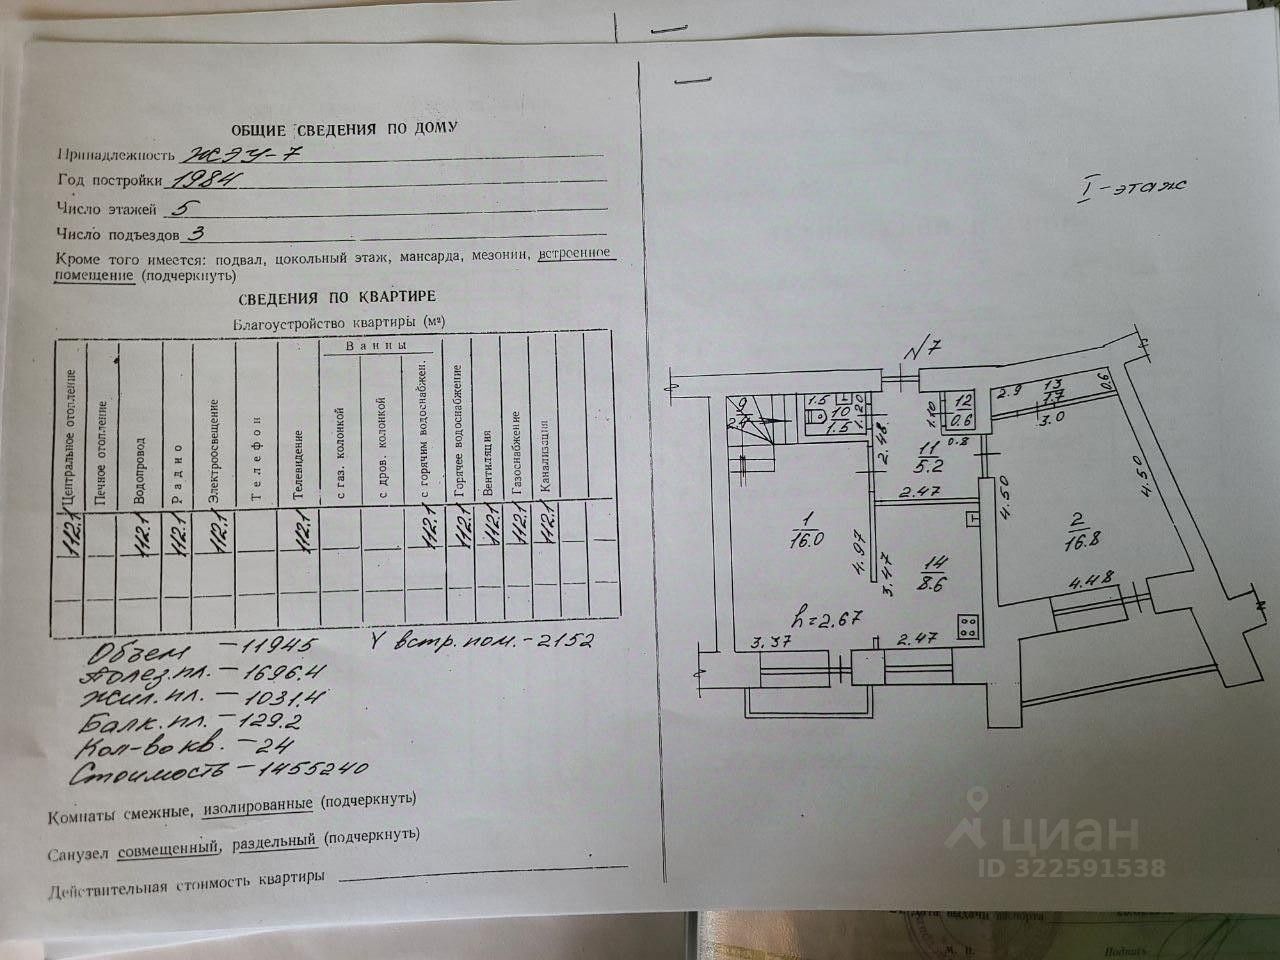 ОБЩИЕ СВЕДЕНИЯ ПО ДОМУ
Принадлежность ЖЭУ-7
Год постройки 1984
Число этажей 5
Число подъездов 3
Кроме того имеется: подвал, цокольный этаж, мансарда, мезонин, встроенное
помещение (подчеркнуть)
СВЕДЕНИЯ ПО КВАРТИРЕ
Благоустройство квартиры (м²)
Ванны
Центральное отопление
Печное отопление
Водопровод
Радио
Электроосвещение
Телефон
Телевидение
с газ. колонкой
с дров. колонкой
с горячим водоснабжен.
Горячее водоснабжение
Вентиляция
Газоснабжение
Канализация
112.1 112.1 112.1 112.1 112.1 112.1 112.1 112.1 112.1 112.1
Объем - 11945 V встр. пом. - 2152
Полез. пл. - 1696.4
Жил. пл. - 1031.4
Балк. пл. - 129.2
Кол-во кв. - 24
Стоимость - 1455240
Комнаты смежные, изолированные (подчеркнуть)
Санузел совмещенный, раздельный (подчеркнуть)
Действительная стоимость квартиры
I-этаж
N7
9
2.4
1.5
10
1.5
1.20
2.48
1.10
12
0.6
0.8
11
5.2
2.47
2.9
13
1.7
0.6
3.0
4.50
4.50
1
16.0
4.97
3.47
14
8.6
2
16.8
4.48
h=2.67
3.37
2.47
циан
ID 322591538
Дата выдачи паспорта
М. П.
Подпись